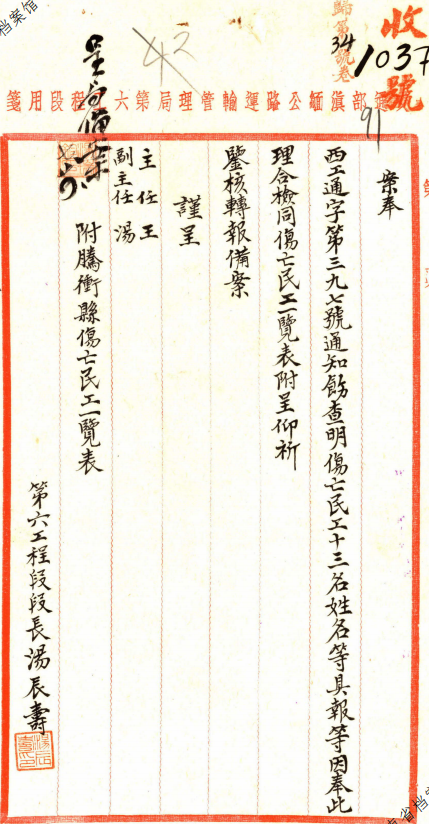 收號
1037
歸第34號卷
42
91
部滇緬公路運輸管理局第六工程段用箋
案奉
西工通字第三九七號通知飭查明傷亡民工十三名姓名等具報等因奉此
理合檢同傷亡民工一覽表附呈仰祈
鑒核轉報備案
謹呈
主任王
副主任湯
附騰衝縣傷亡民工一覽表
第六工程段段長湯辰壽
呈局備案
档案馆
省档案